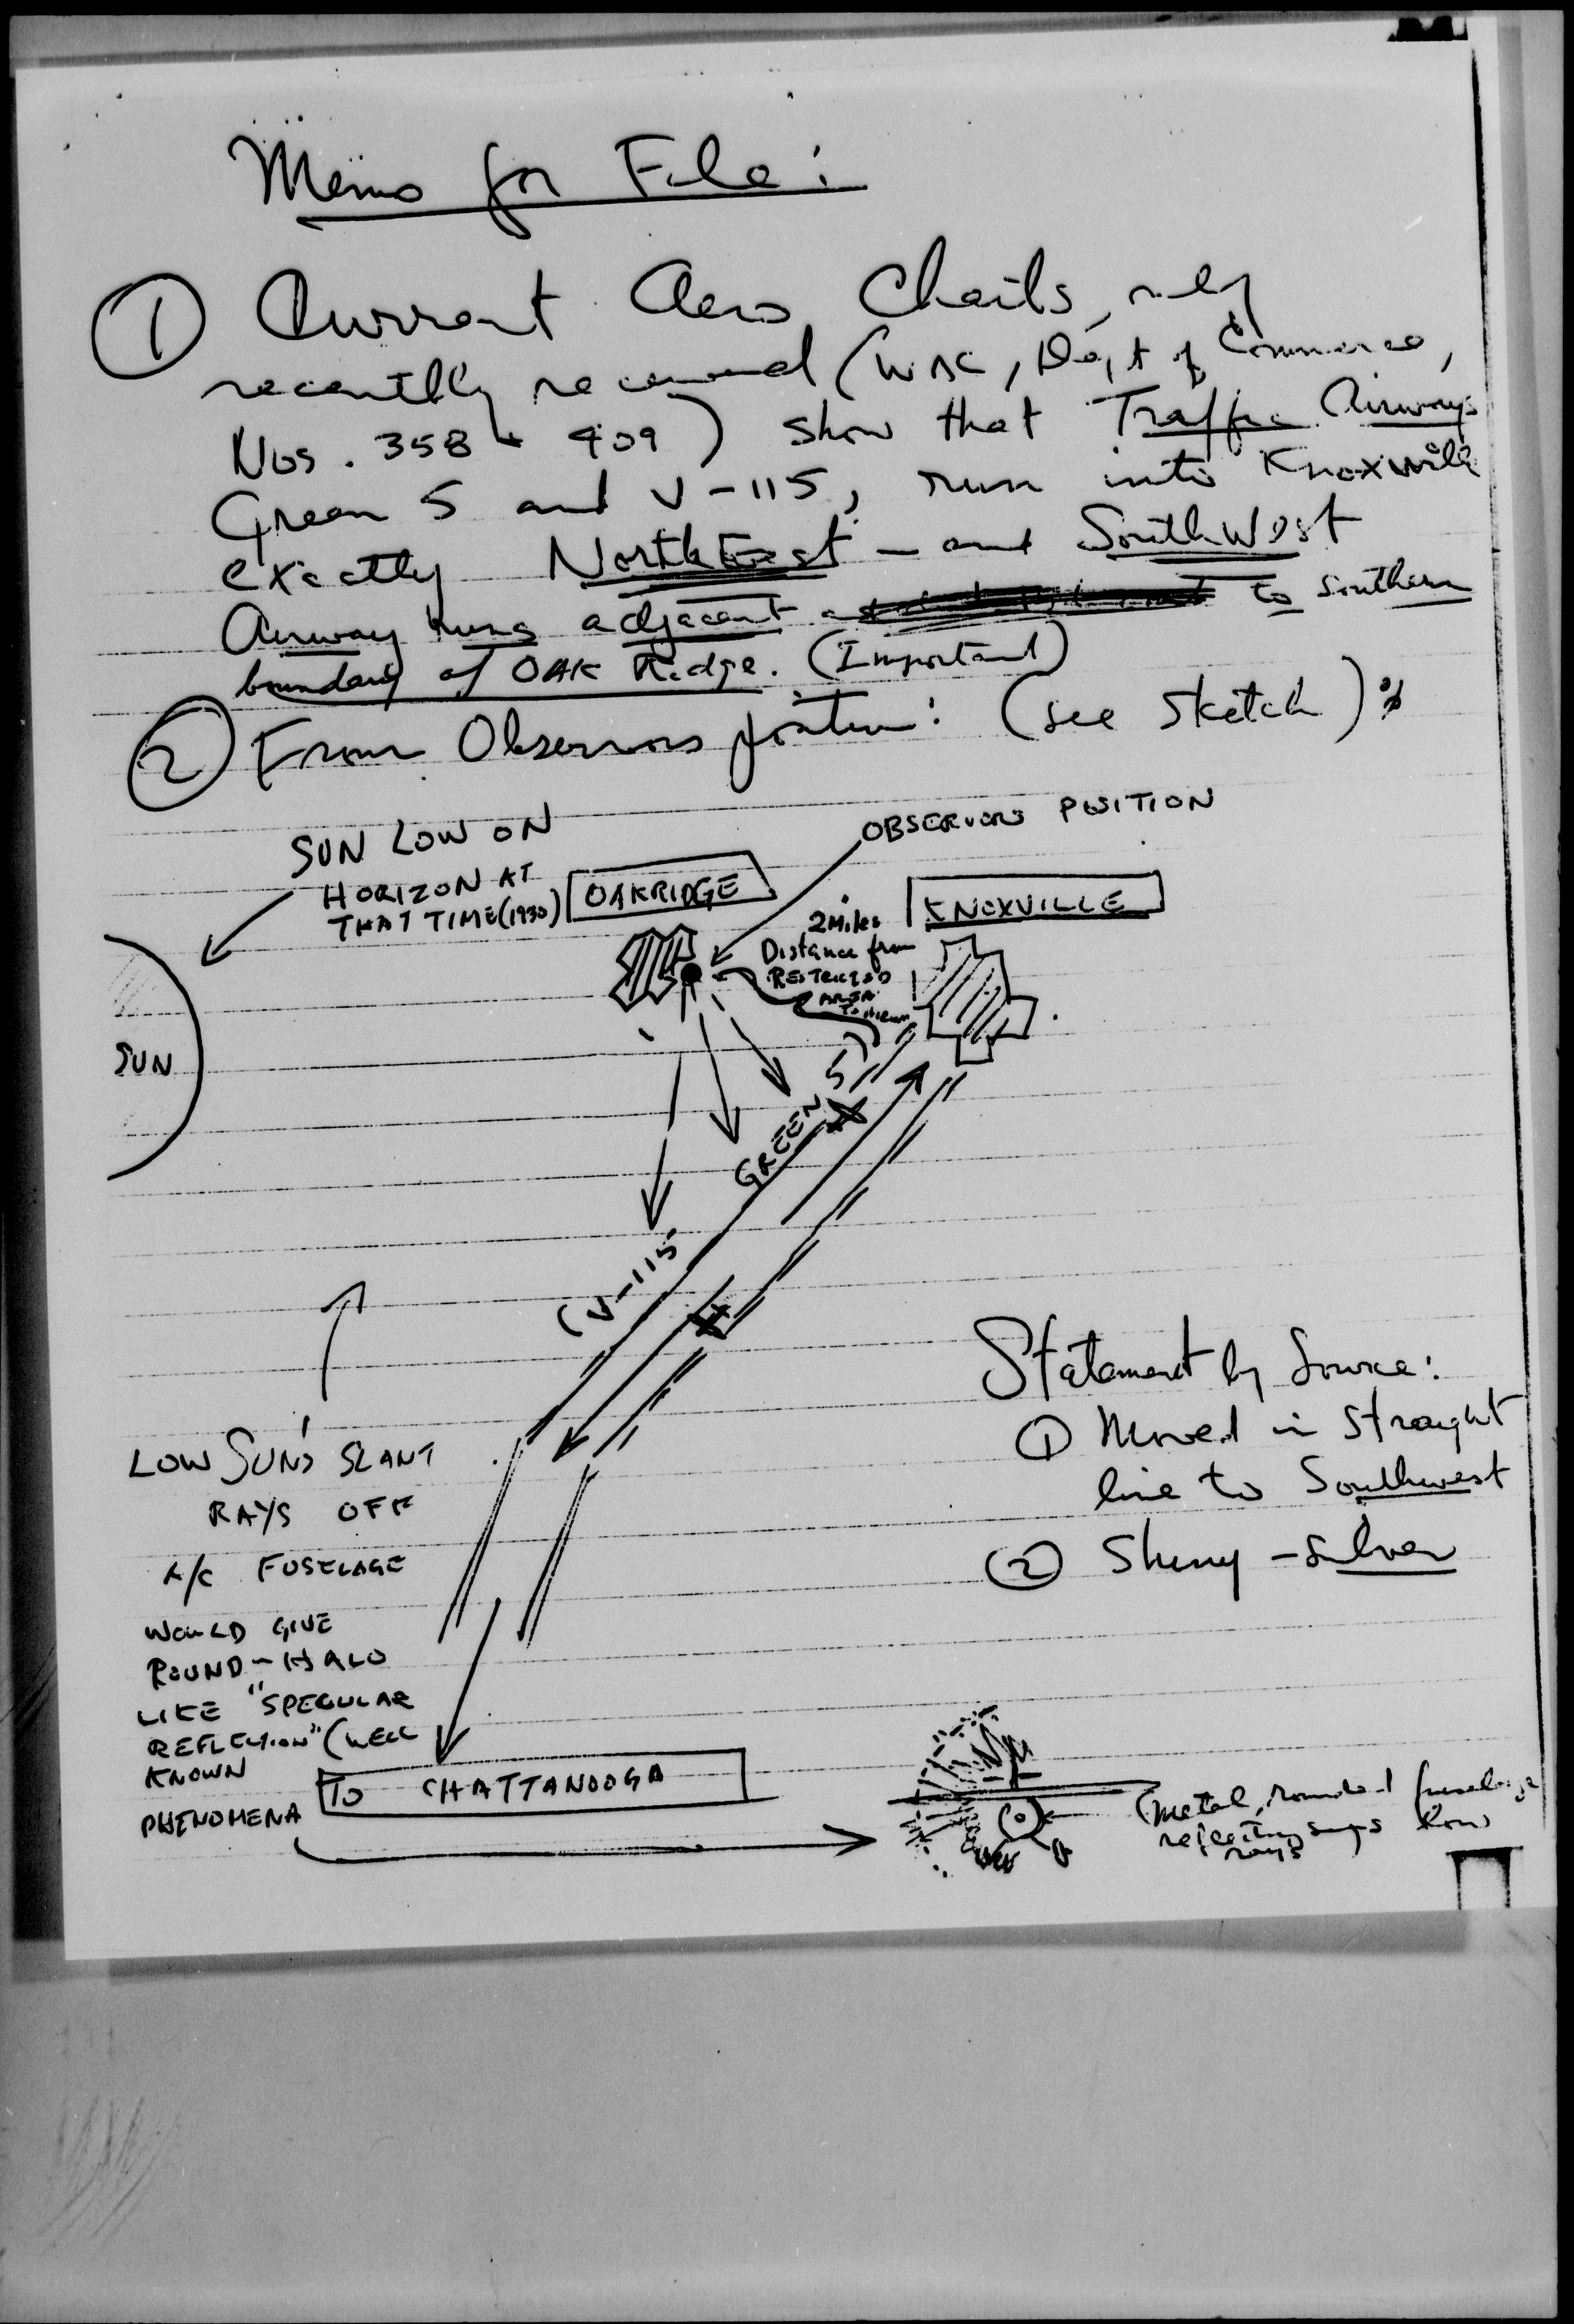 Memo for File:
① Current Aero Charts,
recently received (WAC, Dept of Commerce,
Nos. 358 + 409) show that Traffic Airways
Green 5 and V-115, run into Knoxville
exactly NorthEast - and SouthWest
Airway runs adjacent to Southern
boundary of OAK Ridge. (Important)
② From Observors position: (see sketch):
SUN LOW ON
HORIZON AT
THAT TIME (1930)
OBSERVORS POSITION
OAKRIDGE
KNOXVILLE
2 Miles
Distance from
RESTRICTED
AREA
SUN
GREEN 5)
(V-115
Statement by Source:
① Moved in straight
line to Southwest
② Shiny - silver
LOW SUN'S SLANT
RAYS OFF
A/C FUSELAGE
WOULD GIVE
ROUND - HALO
LIKE "SPECULAR
REFLECTION" (WELL
KNOWN
PHENOMENA
TO CHATTANOOGA
(Metal, rounded fuselage
reflecting suns low
rays